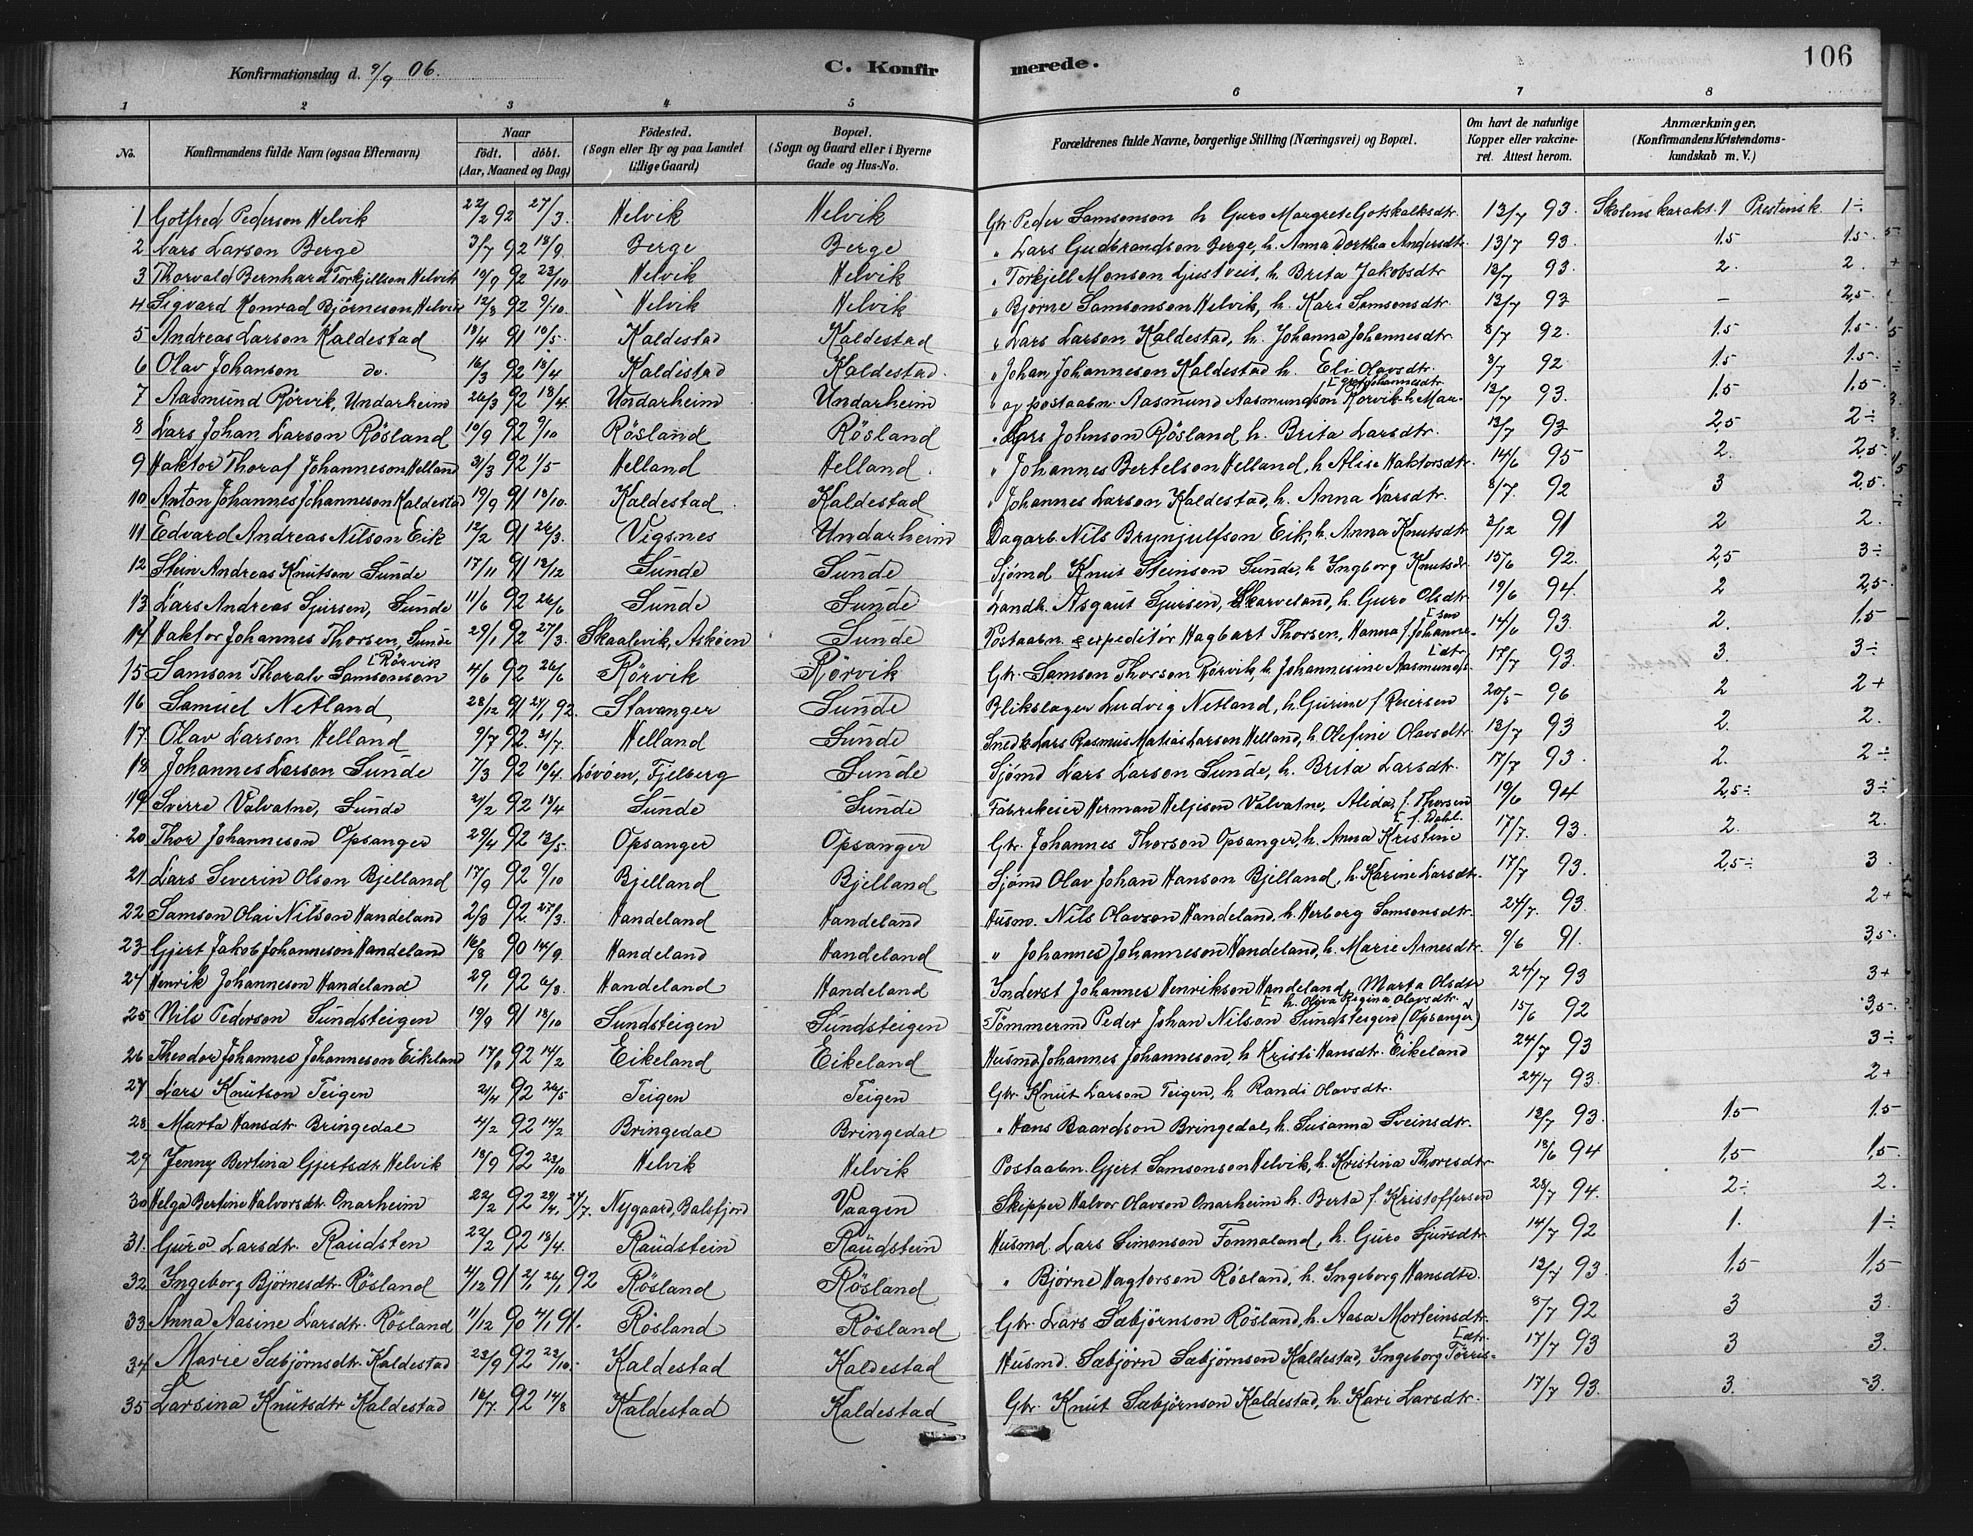 106
Konfirmationsdag d. 9/9 06.
C. Konfirmerede.
1 2 3 4 5 6 7 8
No.
Konfirmandens fulde Navn (ogsaa Efternavn)
Naar
født. døbt.
(Aar, Maaned og Dag)
Fødested.
(Sogn eller By og paa Landet
tillige Gaard)
Bopæl.
(Sogn og Gaard eller i Byerne
Gade og Hus-No.
Forældrenes fulde Navne, borgerlige Stilling (Næringsvei) og Bopæl.
Om havt de naturlige
Kopper eller vakcine-
ret. Attest herom.
Anmærkninger.
(Konfirmandens Kristendoms-
kundskab m. V.)
1 Gotfred Pederson Helvik 22/2 92 27/3. Helvik Helvik Gbr. Peder Samsonson h Guro Margrete Gotskalksdtr. 13/7 93. Skolens karakt. 1 Prestens k. 1÷
2 Lars Larson Berge 3/7 92 18/9. Berge Berge " Lars Gudbrandson Berge, h. Anna Dorthea Andersdtr. 13/7 93. 1.5 1.5.
3 Thorvald Bernhard Torkjellson Helvik 19/9 92 23/10 Helvik Helvik " Torkjell Monson Ljustveit, h. Brita Jakobsdtr 13/7 93. 2. 2.
4 Sigvard Konrad Bjørneson Helvik 12/8 92 9/10. Helvik Helvik " Bjørne Samsonson Helvik, h. Kari Samsonsdtr. 13/7 93 – 2,5.
5 Andreas Larson Kaldestad 18/4 91 10/5. Kaldestad Kaldestad " Lars Larson Kaldestad, h. Johanna Johannesdtr 8/7 92. 1.5 1.5.
6 Olav Johanson do. 16/3 92 18/4 Kaldestad Kaldestad. " Johan Johanneson Kaldestad h. Eli Olavsdtr. 8/7 92 1.5 1.5.
7 Aasmund Rørvik, Undarheim 26/3 92 18/4. Undarheim Undarheim " og postaabn. Aasmund Aasmundson Rørvik h Mar- [grete Johannesdtr. 13/7 93. 1.5 1.5.
8 Lars Johan Larson Røsland 10/9 92 9/10 Røsland Røsland " Lars Johnson Røsland h. Brita Larsdtr. 13/7 93 2,5 2÷
9 Haktor Thoraf Johanneson Helland 31/3 92 1/5 Helland Helland. " Johannes Bertelson Helland, h Alise Haktorsdtr. 14/6 95 2. 2,5.
10 Anton Johannes Johanneson Kaldestad 19/9 91 18/10. Kaldestad Kaldestad " Johannes Larson Kaldestad, h. Anna Larsdtr. 8/7. 92 3 2,5.
11 Edvard Andreas Nilson Eik 12/2 91 26/3. Vigsnes Undarheim Dagarb. Nils Brynjulfson Eik, h. Anna Knutsdtr 2/12 91 2 2.
12 Stein Andreas Knutson Sunde 17/11 91 18/12 Sunde Sunde Sjømd Knut Steinson Sunde, h Ingborg Knutsdr. 15/6 92. 2,5 3÷
13 Lars Andreas Sjursen, Sunde 11/6 92 26/6 Sunde Sunde Landh. Asgaut Sjursen, Skarveland, h. Guro Olsdtr 19/6 94. 2 2,5.
14 Haktor Johannes Thorsen, Sunde 29/1 92 27/3. Skaalevik, Askøen Sunde Postaabn. & expeditør Hagbart Thorsen, Hanna f. Johanne- [sen 14/6 93. 2. 1,5
15 Samson Thoralv Samsonson [Rørvik 4/6 92 26/6 Rørvik Rørvik Gbr. Samson Thorson Rørvik, h. Johannesine Aasmunds- [dtr 17/7 93. 3. 3÷
16 Samuel Netland 28/12 91 24/1 92. Stavanger Sunde Blikslager Ludvig Netland, h. Gurine f. Reiersen 20/5 96 2 2+
17. Olav Larson Helland 9/7 92. 31/7. Helland Sunde Snedk Lars Rasmus Matias Larson Helland, h. Olefine Olavsdtr 13/7 93 2. 2.
18 Johannes Larson Sunde 7/3 92 10/4. Løvøen, Fjelberg Sunde Sjømd Lars Larson Sunde, h. Brita Larsdtr. 17/7 93. 2. 2÷
19 Sverre Valvatne, Sunde 21/2 92 18/4 Sunde Sunde Fabrikeier Herman Heljeson Valvatne, Alida, f. Thorsen 19/6 94 2,5÷ 3÷
20 Thor Johanneson Opsanger 29/4 92 13/5. Opsanger Opsanger Gbr. Johannes Thorson Opsanger, h. Anna Kristine [f. Dahl. 17/7. 93. 2. 2.
21 Lars Severin Olson Bjelland 17/9 92 9/10 Bjelland Bjelland Sjømd Olav Johan Hanson Bjelland, h. Karine Larsdtr. 17/7 93. 2,5÷ 3.
22 Samson Olai Nilson Handeland 2/8 92 27/3. Handeland Handeland Husm. Nils Olavson Handeland, h. Herborg Samsonsdtr. 24/7. 93. 2+
23 Gjert Jakob Johanneson Handeland 16/8 90 14/9. Handeland Handeland " Johannes Johanneson Handeland, h. Marie Arnesdtr. 9/6 91. 3,5.
24 Henrik Johanneson Handeland 29/1 92 6/3. Handeland Handeland Inderst Johannes Henrikson Handeland, Marta Olsdtr 24/7 93 3+
25 Nils Pederson Sundsteigen 19/9 91 18/10 Sundsteigen Sundsteigen Tømmermd Peder Johan Nilson Sundsteigen (Opsanger) [h. Oliva Regina Olavsdtr. 15/6 92 3,5.
26 Theodor Johannes Johanneson Eikeland 92 14/2 Eikeland Eikeland Husmd. Johannes Johanneson, h Kristi Hansdtr. Eikeland 24/7 93 3÷
27 Lars Knutson Teigen 21/4 92 26/5 Teigen Teigen Gbr Knut Larson Teigen, h. Randi Olavsdtr. 24/7 93. 2+
28 Marta Hansdtr. Bringedal 4/2 92 14/2 Bringedal Bringedal " Hans Baardson Bringedal, h. Susanna Sveinsdtr. 13/7 93. 1.5 1.5
29 Jenny Bertina Gjertsdtr Helvik 18/9 92 23/10 Helvik Helvik Postaabn. Gjert Samsonson Helvik, h. Kristina Thoresdtr 18/6 94 1,5 1,5.
30 Helga Bertine Halvorsdtr. Onarheim 22/2 92 29/4. 24/7. Nygaard, Balsfjord Vaagen Skipper Halvor Olavson Onarheim h. Berta f. Kristoffersen 28/7 94. 2÷ 2.
31. Guro Larsdtr. Raudsten 22/2 92 18/4. Raudstein Raudstein Husmd. Lars Simonson Fonnaland, h. Guro Sjursdtr 14/7 92 1. 1÷
32 Ingeborg Bjørnesdtr. Røsland 4/12 91 2/1 26/1 92 Røsland Røsland " Bjørne Hagtorson Røsland, h. Ingeborg Hansdtr. 13/7 93. 1,5 1,5
33 Anna Aasine Larsdtr. Røsland 11/12 90 4/1 91. Røsland Røsland Gbr. Lars Sæbjørnson Røsland, h. Aasa Morteinsdtr. 8/7 92 3 3.
34 Marie Sæbjørnsdtr. Kaldestad 23/9 92 23/10. Kaldestad Kaldestad Husmd. Sæbjørn Sæbjørnson Kaldestad, Ingeborg Tørris- [dtr. 17/7 93 3 3.
35 Larsina Knutsdtr Kaldestad 16/7. 92 14/8 Kaldestad Kaldestad Gbr. Knut Sæbjørnson Kaldestad, h. Kari Larsdtr. 17/7 93. 3. 3.